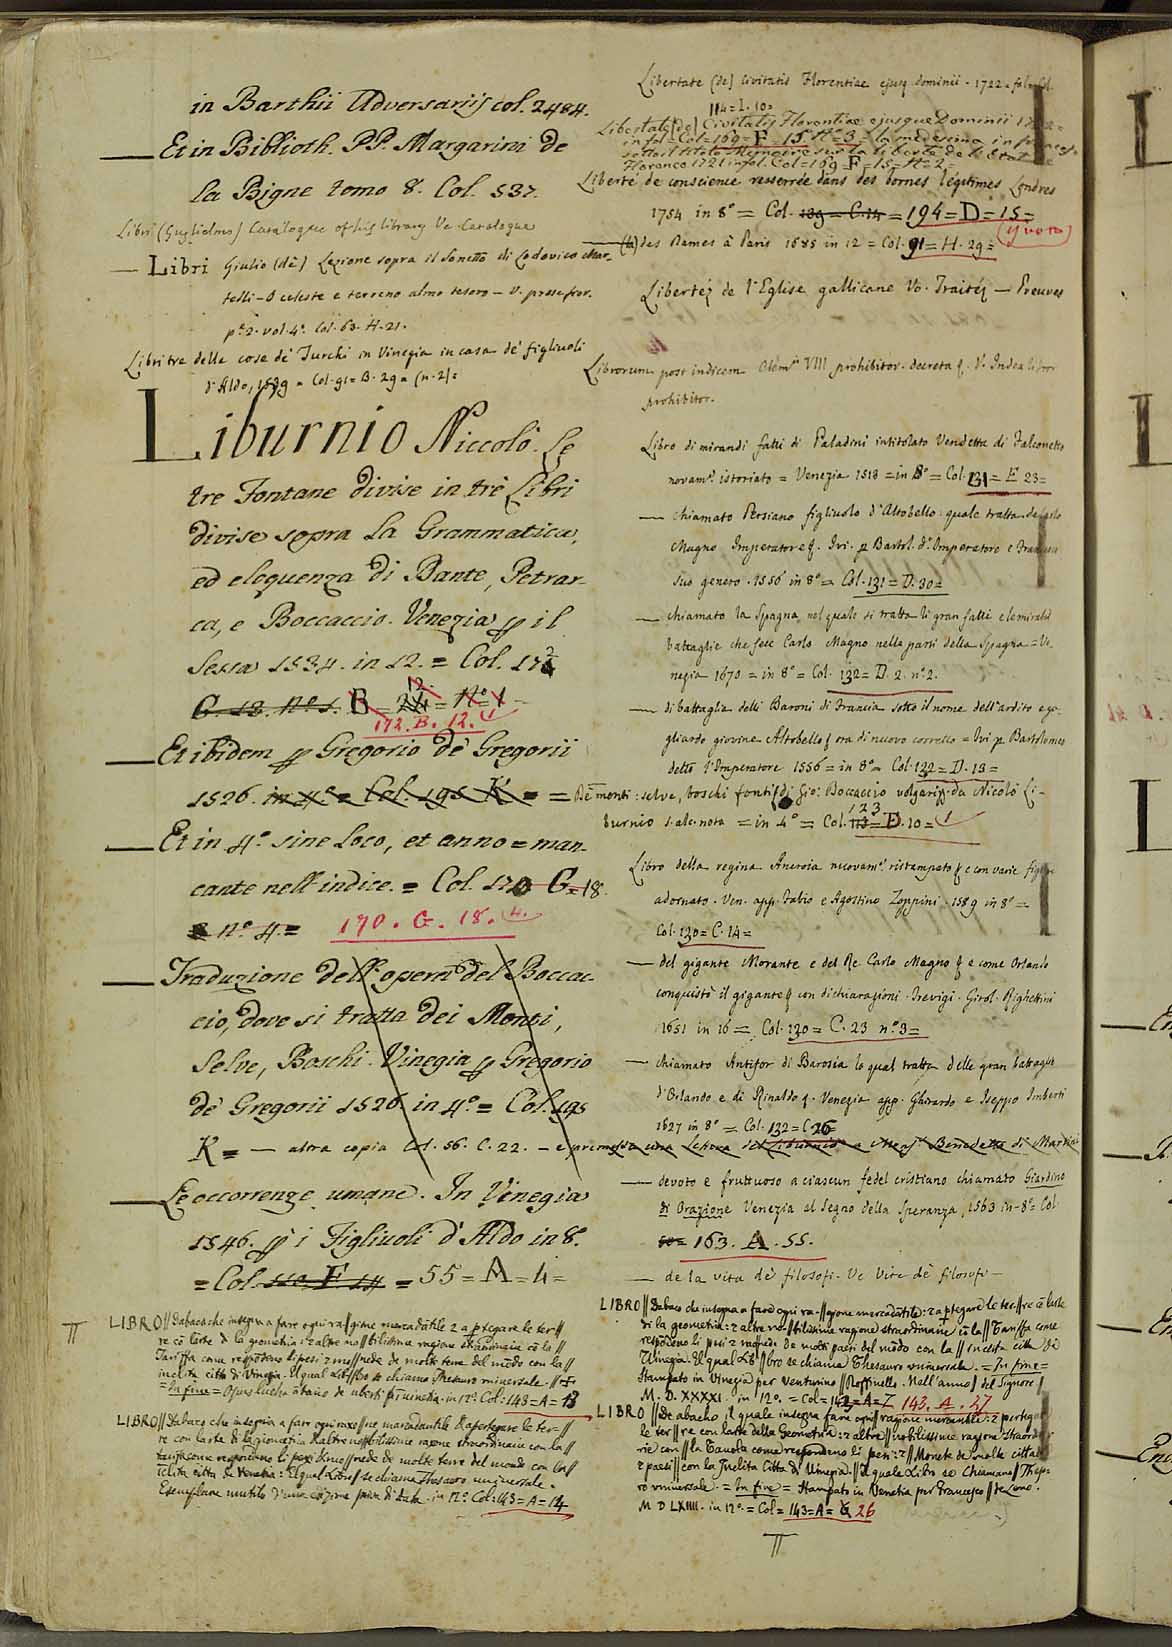 in Barthii Adversariis col. 2484.
Et in Biblioth. PP. Margarini de
la Bigne tomo 8. Col. 537.
Libri (Guglielmo) Catalogue of his library Ve. Catalogue
— Libri Giulio (de) Lezione sopra il Sonetto di Lodovico Mar-
telli - O celeste e terreno almo tesoro - V. prose fior.
p.e 2. vol. 4.o Col. 63. H. 21.
Libri tre delle cose de Turchi in Vinegia in casa de' figliuoli
d'Aldo, 1539 = Col. 91 = B. 29 = (n. 2) =
Liburnio Niccolò. Le
tre Fontane divise in trè Libri
divise sopra la Grammatica,
ed eloquenza di Dante, Petrar-
ca, e Boccaccio. Venezia per il
Sessa 1534. in 12. = Col. 172
G. 18. No. 1. B = 24 = No. 1 -
172. B. 12.
Et ibidem per Gregorio de Gregorii
1526. in 4.o = Col. 195 K = =
Et in 4.o sine loco, et anno = man-
cante nell'indice. = Col. 170 G = 18.
n.o 4 = 170. G. 18. 4.
Traduzione dell'opera del Boccac-
cio, dove si tratta dei Monti,
Selve, Boschi. Vinegia per Gregorio
de Gregorii 1526 in 4.o = Col. 195
K = — altra copia Col. 56. C. 22. —
Le occorrenze umane. In Vinegia
1546. per i Figliuoli d'Aldo in 8.
= Col. 110. F 14 = 55 = A = 4 =
LIBRO // Dabaco che insegna a fare ogni ra // gione mercadãtile 2 a ptegare le ter //
re cõ larte di la geometria: 2 altre no // bilissime ragione straordinarie cõ la //
Tariffa come respõdeno li pesi 2 monede de molte terre del mõdo con la //
inclita citta di Vinegia. El qual Libro se chiama Thesauro universale. //
= In fine =
in 12.o Col: 143 = A = 13
LIBRO // Dabaco che insegnia a fare ogni
re con larte di la geometria & altre nobilissime ragione straordinarie con la //
tariffa come respondeno li pesi & monede de molte terre del mondo con la //
iclita citta de Venetia: El qual Libro se chiama Thesauro universale.
Esemplare mutilo in 12.o Col: 143 = A = 14
Libertate (de) Civitatis Florentiae ejusq. dominii. 1722. fol. Col.
114 = L. 10 =
Libertate (de) Civitatis Florentiae ejusque Dominii 1722 =
in fol = Col = 169 = F = 15 No = 3 = la medesima in francese
sotto il titolo Memoire sur la liberté de l'Etat
Florence 1721 in fol. Col = 169 = F = 15 = No = 2 =
Liberté de conscience resserrée dans des bornes légitimes Londres
1754 in 8o = Col. 139 = C. 14 = 194 = D = 15 =
(la) des Dames à Paris 1685 in 12 = Col. 91 = H. 29 =
Libertéz de l'Eglise gallicane Ve. Traitéz — Preuves
Librorum post indicem Clem.is VIII prohibitor. decreta &. V. Index libror
prohibitor.
Libro di mirandi fatti di Paladini intitolato Vendetta di Falconetto
novam.e istoriato = Venezia 1513 = in 8o = Col. 131 = E 23 =
— chiamato Persiano figliuolo d'Altobello: quale tratta de Carlo
Magno Imperatore &. Ivi. p Bartol. d.o Imperatore e Francesco
suo genero. 1556 in 8o = Col. 131 = D. 30 =
— chiamato la Spagna, nel quale si tratta li gran fatti e le mirabili
battaglie che fece Carlo Magno nelle parti della Spagna = Ve-
nezia 1670 = in 8o = Col. 132 = D. 2. no. 2.
— di battaglia delli Baroni di Francia sotto il nome dell'ardito e ga-
gliardo giovine Altobello & ora di nuovo corretto = Ivi p Bartolomeo
detto l'Imperatore 1556 = in 8o = Col. 132 = D. 13 =
De monti: selve, boschi fonti & di Gio: Boccaccio volgariz. da Nicolò Li-
burnio s. alc. nota = in 4o = Col. 123 = D. 10 = 1
Libro della regina Ancroia nuovam.e ristampato & e con varie figure
adornato. Ven. app. Fabio e Agostino Zoppini. 1589 in 8o =
Col. 130 = C. 14 =
— del gigante Morante e del Re Carlo Magno & e come Orlando
conquistò il gigante & con dichiarazioni. Trevigi. Girol. Righettini
1651 in 16 = Col. 130 = C. 23 no. 3 =
— chiamato Antifor di Barosia lo qual tratta delle gran battaglie
d'Orlando e di Rinaldo &. Venezia app. Ghirardo e Iseppo Imberti
1627 in 8o = Col. 132 = C. 26
e premessa una Lettera del Liburnio a Mess. Benedetto di Martini
— devoto e fruttuoso a ciascun fedel cristiano chiamato Giardino
di Orazione Venezia al Segno della Speranza, 1563 in-8o = Col.
163. A. 55.
— de la vita de' filosofi. Ve Vite de' filosofi —
LIBRO // Dabaco che insegna a fare ogni ra // gione mercadãtile: 2 a ptegare le ter // re cõ larte
di la geometria: 2 altre no // bilissime ragione straordinarie cõ la // Tariffa come
respõdeno li pesi 2 monede de molti paesi del mõdo con la // inclita citta de
Vinegia. El qual Li // bro se chiama Thesauro universale. = In fine =
Stampato in Vinegia per Venturino // Roffinello. Nell'anno / del Signore /
M. D. XXXXI. in 12o. = Col = 143 = A = 7 143. A. 27
LIBRO // De abacho, il quale insegna fare ogni // ragione mercantile: 2 pertegar
le ter // re con larte della Geometria: 2 altre // nobilissime ragione straordi
rie con // la Tavola come respondeno li pesi: 2 // Monete de molte citta
2 paesi // con la Inclita Citta di Vinegia. // Il quale Libro se Chiamano / Thesau
ro universale. = In fine = Stampato in Venetia per Francesco // de Leno.
M D LXIIII. in 12o. = Col = 143 = A = 26